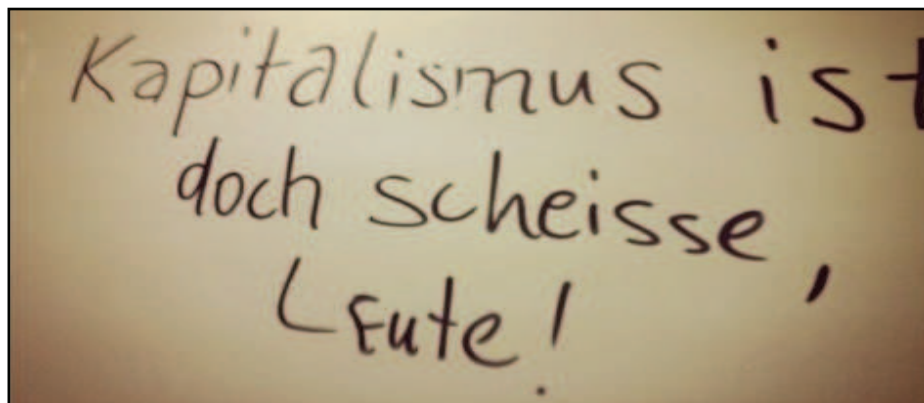 Kapitalismus ist
doch scheisse,
Leute!